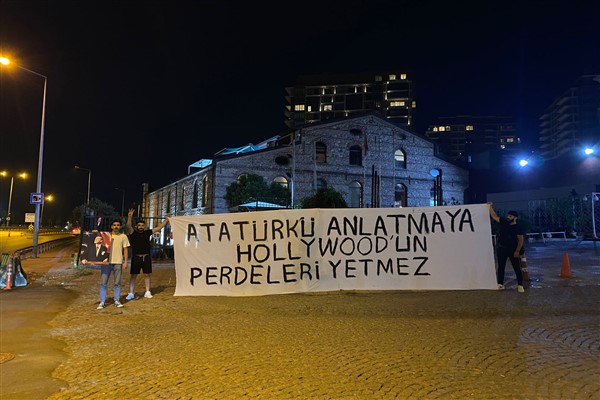 ATATÜRK'Ü ANLATMAYA
HOLLYWOOD'UN
PERDELERİ YETMEZ